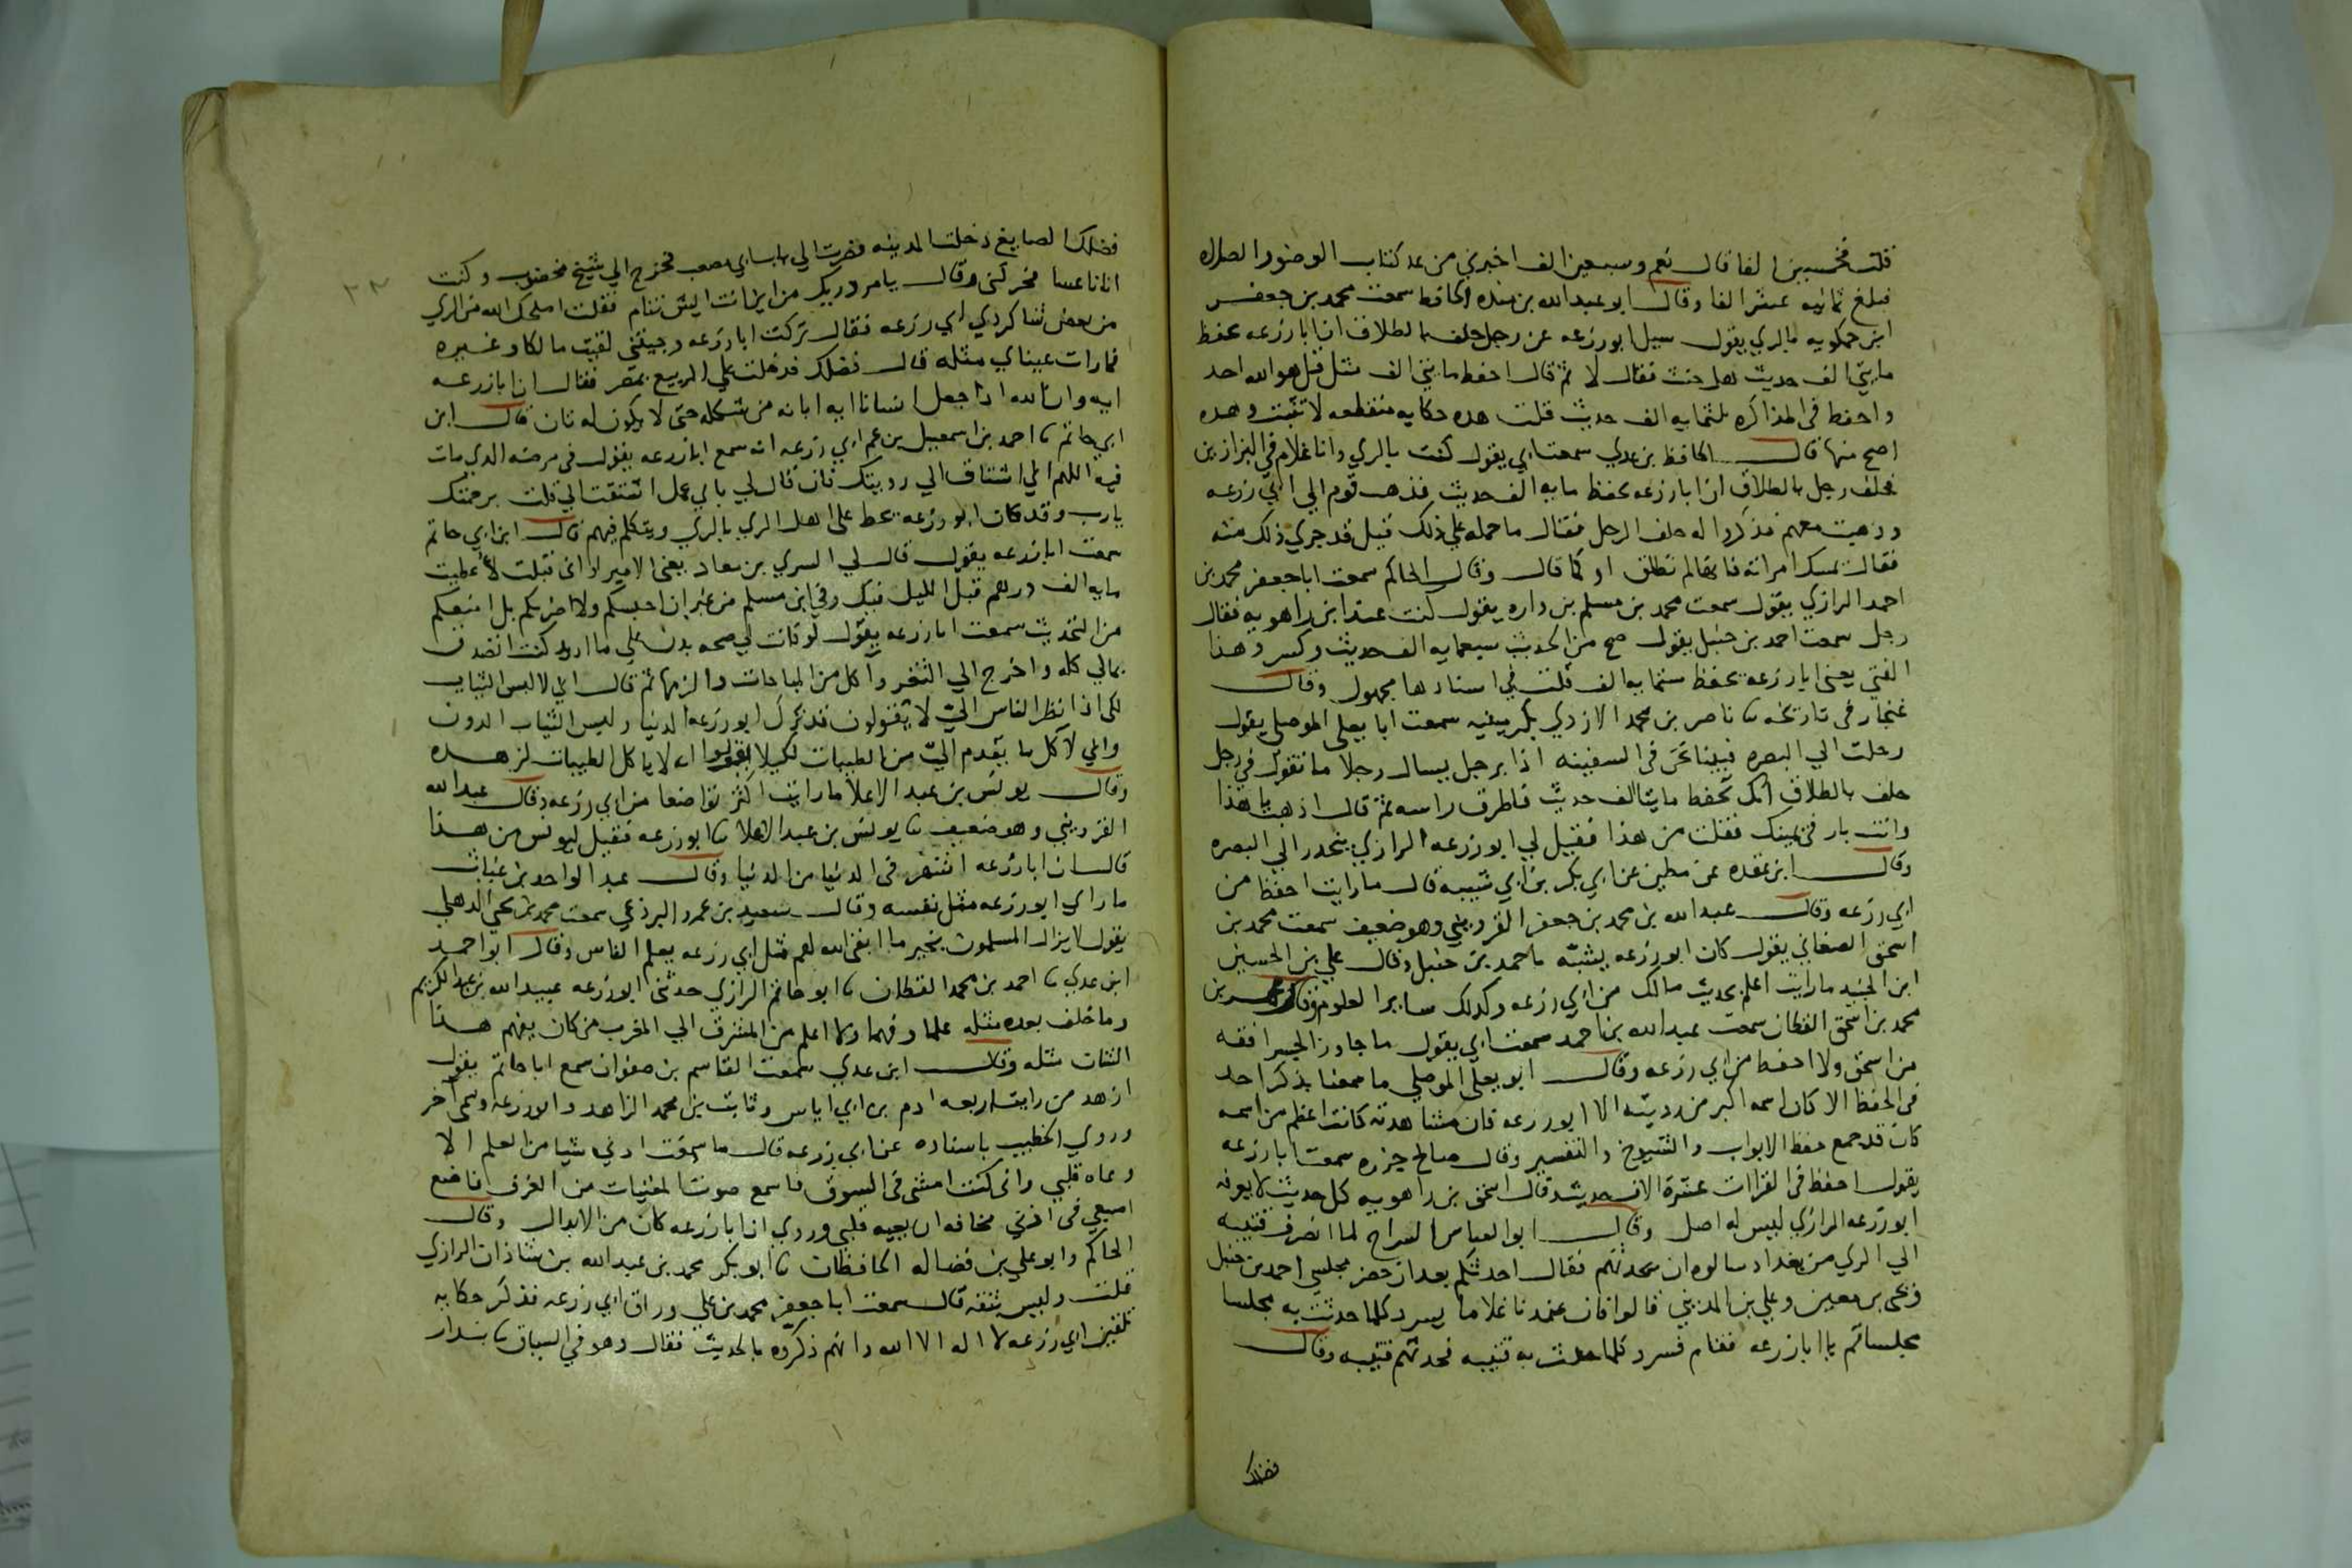 قلت فخمسين الفا قال نعم وسبعين الف اخبرني من عد كتاب الوضو والصلاه
فبلغ ثمانيه عشر الفا وقال ابو عبد الله بن منده الحافظ سمعت محمد بن جعفر
ابن حمكويه بالري يقول سيل ابو زرعه عن رجل حلف بالطلاق ان ابا زرعه يحفظ
مايتي الف حديث هل حنث فقال لا ثم قال احفظ مايتي الف مثل قل هو الله احد
واحفظ في المذاكره ثلثمايه الف حديث قلت هذه حكايه منقطعه لا تثبت وهذه
اصح منها قال الحافظ بن عدي سمعت ابي يقول كنت بالري وانا غلام في البزازين
فحلف رجل بالطلاق ان ابا زرعه يحفظ مايه الف حديث فذهب قوم الي ابي زرعه
وذهبت معهم فذكروا له حلف الرجل فقال ما حمله علي ذلك قيل قد جري ذلك منه
فقال يمسك امراته فانها لم تطلق او كما قال وقال الحاكم سمعت ابا جعفر محمد بن
احمد الرازي يقول سمعت محمد بن مسلم بن واره يقول كنت عند ابن راهويه فقال
رجل سمعت احمد بن حنبل يقول صح من الحديث سبعمايه الف حديث وكسر وهذا
الفتي يعني ابا زرعه يحفظ ستمايه الف قلت في اسنادها مجهول وقال
غنجار في تاريخه ثنا ناصر بن محمد الازدي بكرمينيه سمعت ابا يعلى الموصلي يقول
رحلت الي البصره فبينا نحن في السفينه اذا برجل يسال رجلا ما تقول في رجل
حلف بالطلاق انك تحفظ مايتا الف حديث فاطرق راسه ثم قال اذهب يا هذا
وانت بار في يمينك فقلت من هذا فقيل لي ابو زرعه الرازي ينحدر الي البصره
وقال ابن عقده عن مطين عن ابي بكر بن ابي شيبه قال ما رايت احفظ من
ابي زرعه وقال عبد الله بن محمد بن جعفر القزويني وهو ضعيف سمعت محمد بن
اسحق الصغاني يقول كان ابو زرعه يشبه باحمد بن حنبل وقال علي بن الحسين
ابن الجنيد ما رايت اعلم بحديث مالك من ابي زرعه وكذلك ساير العلوم وقال عمر بن
محمد بن اسحق القطان سمعت عبد الله بن احمد سمعت ابي يقول ما جاوز الجسر افقه
من اسحق ولا احفظ من ابي زرعه وقال ابو يعلي الموصلي ما سمعنا بذكر احد
في الحفظ الا كان اسمه اكبر من رويته الا ابو زرعه فان مشاهدته كانت اعظم من اسمه
كان قد جمع حفظ الابواب والشيوخ والتفسير وقال صالح جزره سمعت ابا زرعه
يقول احفظ في القرات عشرة الاف حديث وقال اسحق بن راهويه كل حديث لا يعرفه
ابو زرعه الرازي ليس له اصل وقال ابو العباس السراج لما انصرف قتيبه
الي الري من بغداد سالوه ان يحدثهم فقال احدثكم بعد ان حضر مجلسي احمد بن حنبل
ويحي بن معين وعلي بن المديني قالوا فان عندنا غلاما يسرد كلما حدثت به مجلسا
مجلسا قم يا ابا زرعه فقام فسرد كلما حدث به قتيبه فحدثهم قتيبه وقال
فضلك
٢٢
فضلك الصايغ دخلت المدينه فصرت الي باب ابي مصعب فخرج الي شيخ مخضوب وكنت
انا ناعسا فحركني وقال يا مردريك من اين انت اليش تنام فقلت اصلحك الله من الري
من بعض شاكردي ابي زرعه فقال تركت ابا زرعه وجيتني لقيت مالكا وغيره
فما رات عيناي مثله قال فضلك فدخلت علي الربيع بمصر فقال ان ابا زرعه
ايه وان الله اذا جعل انسانا ايه ابانه من شكله حتى لا يكون له ثان قال ابن
ابي حاتم ثنا احمد بن اسمعيل بن عم ابي زرعه انه سمع ابا زرعه يقول في مرضه الذي مات
فيه اللهم اني اشتاق الي رويتك فان قال لي باي عمل اشتقت الي قلت برحمتك
يارب وقد كان ابو زرعه يحط على اهل الري بالري ويتكلم فيهم قال ابن ابي حاتم
سمعت ابا زرعه يقول قال لي السري بن معاد يعني الامير لو اني قبلت لاعطيت
مايه الف درهم قبل الليل فيك وفي ابن مسلم من غير ان احبسكم ولا اضربكم بل امنعكم
من التحديث سمعت ابا زرعه يقول لو كانت لي صحه بدن علي ما اريد كنت اتصدق
بمالي كله واخرج الي الثغر واكل من المباحات والزمها ثم قال اني لالبس الثياب
لكي اذا نظر الناس الي لا يقولون قد ترك ابو زرعه الدنيا ولبس الثياب الدون
واني لاكل ما يقدم الي من الطيبات لكيلا يقولوا انه لا ياكل الطيبات لزهده
وقال يونس بن عبد الاعلا ما رايت اكثر تواضعا من ابي زرعه وقال عبد الله
القزويني وهو ضعيف ثنا يونس بن عبد الاعلا ثنا ابو زرعه فقيل ليونس من هذا
قال ان ابا زرعه اشهر في الدنيا من الدنيا وقال عبد الواحد بن غياث
ما راي ابو زرعه مثل نفسه وقال سعيد بن عمرو البرذعي سمعت محمد بن يحي الذهلي
يقول لا يزال المسلمون بخير ما ابقى الله لهم مثل ابي زرعه يعلم الناس وقال ابو احمد
ابن عدي ثنا احمد بن محمد القطان ثنا ابو حاتم الرازي حدثني ابو زرعه عبيد الله بن عبد الكريم
وما خلف بعده مثله علما وفهما ولا اعلم من المشرق الي المغرب من كان يفهم هذا
الشان مثله وقال ابن عدي سمعت القاسم بن صفوان سمع ابا حاتم يقول
ازهد من رايت اربعه ادم بن ابي اياس وثابت بن محمد الزاهد وابو زرعه وسمى اخر
وروي الخطيب باسناده عن ابي زرعه قال ما سمعت اذني شيا من العلم الا
وعاه قلبي واني كنت امشي في السوق فاسمع صوت المغنيات من الغرف فاضع
اصبعي في اذني مخافه ان يعيه قلبي وروي ان ابا زرعه كان من الابدال وقال
الحاكم وابو علي بن فضاله الحافظان ثنا ابو بكر محمد بن عبد الله بن شاذان الرازي
قلت وليس بثقه قال سمعت ابا جعفر محمد بن علي وراق ابي زرعه فذكر حكايه
تلقين ابي زرعه لا اله الا الله وانهم ذكروه بالحديث فقال وهو في السياق ثنا بندار